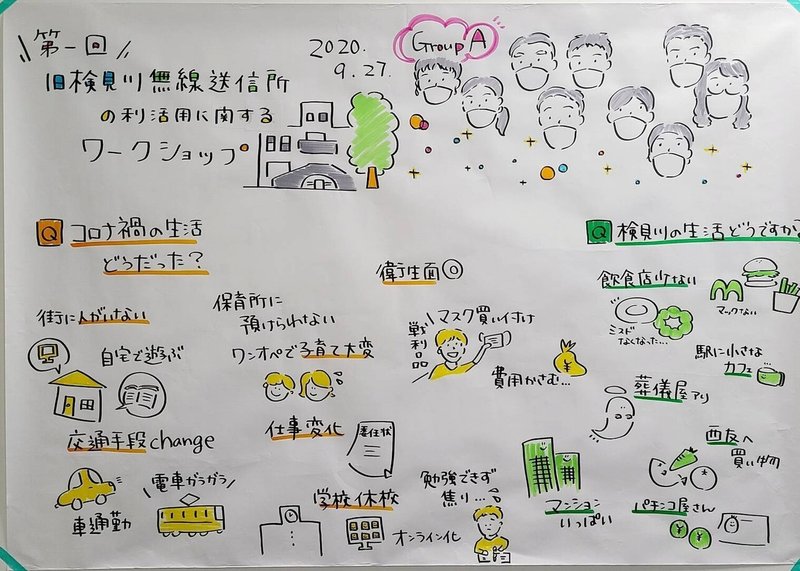 第一回
旧検見川無線送信所
の利活用に関する
ワークショップ
2020.
9.27.
Group A
Q コロナ禍の生活
どうだった？
街に人がいない
自宅で遊ぶ
保育所に
預けられない
ワンオペで子育て大変
衛生面◎
戦利品
マスク買い付け
費用かさむ…
交通手段change
車通勤
電車ガラガラ
仕事変化
委任状
学校休校
オンライン化
勉強できず
焦り…
Q 検見川の生活どうですか
飲食店少ない
ミスド
なくなった…
マックない
駅に小さな
カフェ
葬儀屋アリ
西友へ
買い物
マンション
いっぱい
パチンコ屋さん